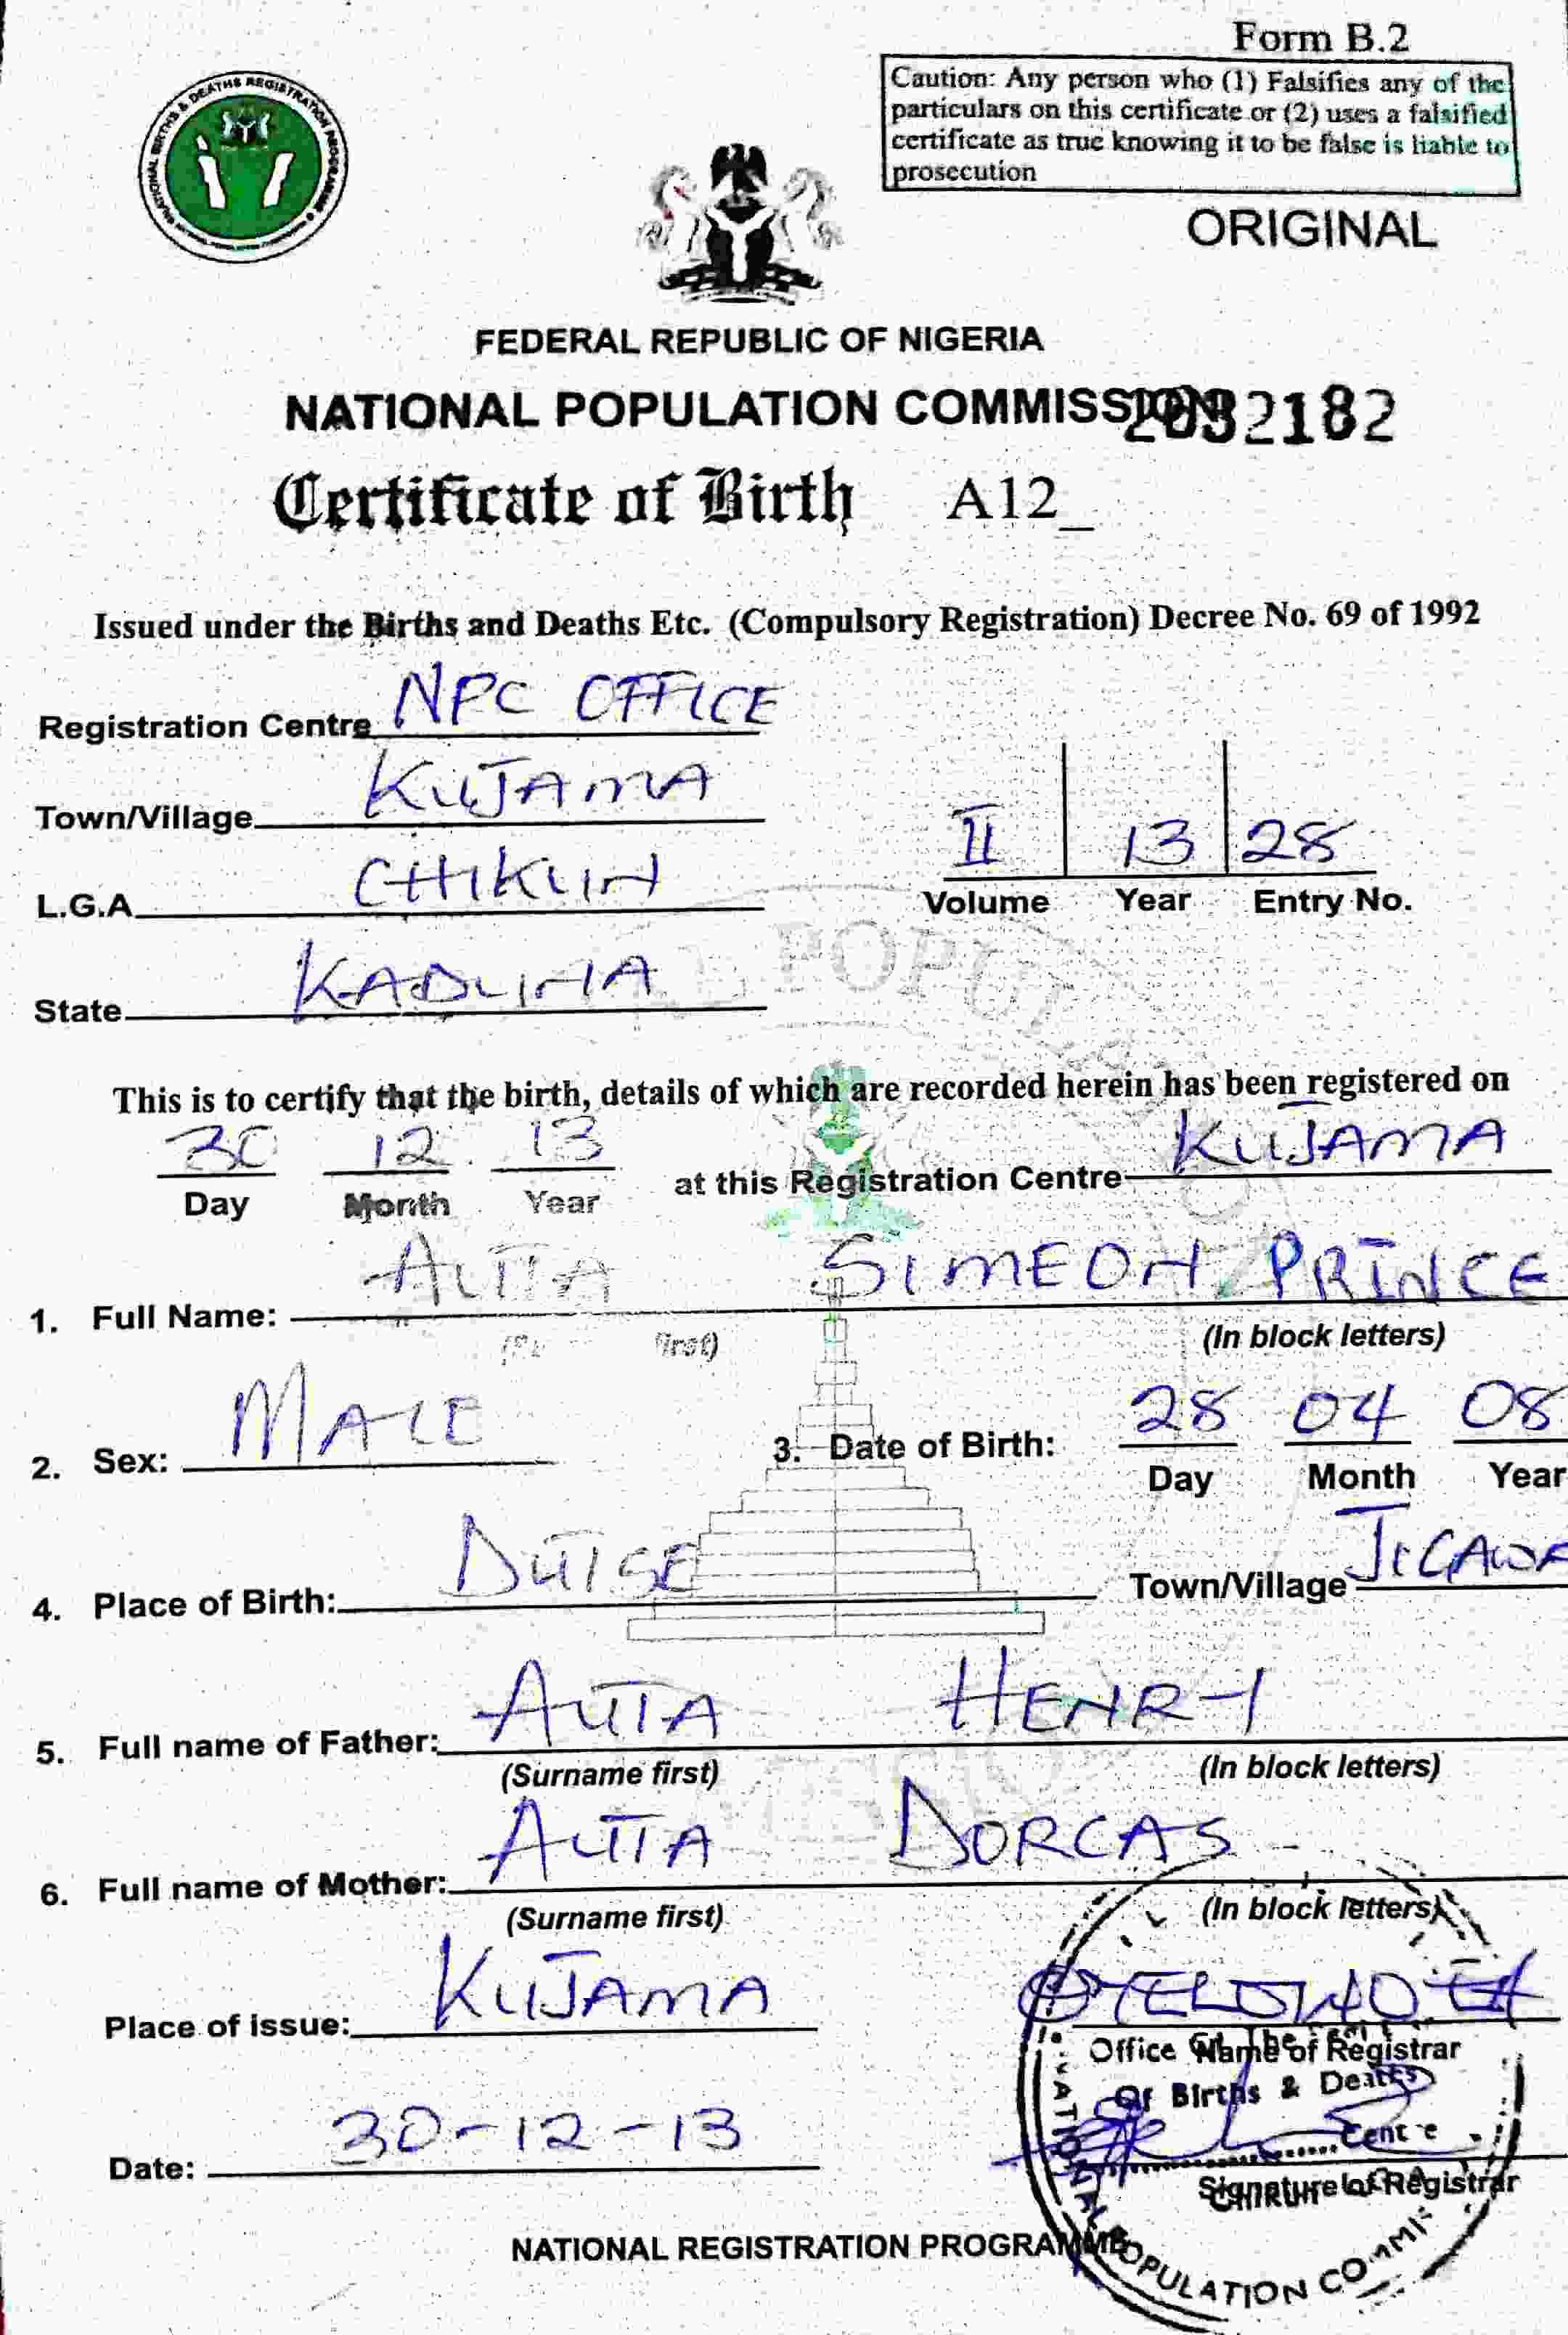 Form B.2
Caution: Any person who (1) Falsifies any of the
particulars on this certificate or (2) uses a falsified
certificate as true knowing it to be false is liable to
prosecution
ORIGINAL
NATIONAL BIRTHS & DEATHS REGISTRATION PROGRAMME
FEDERAL REPUBLIC OF NIGERIA
NATIONAL POPULATION COMMISSION
Certificate of Birth A12_
Issued under the Births and Deaths Etc. (Compulsory Registration) Decree No. 69 of 1992
Registration Centre NPC OFFICE
Town/Village KUJAMA
L.G.A CHIKUN
State KADUNA
II 13 28
Volume Year Entry No.
This is to certify that the birth, details of which are recorded herein has been registered on
30 12 13 at this Registration Centre KUJAMA
Day Month Year
1. Full Name: AUTA SIMEON PRINCE
(In block letters)
2. Sex: MALE 3. Date of Birth: 28 04 08
Day Month Year
4. Place of Birth: DUTSE Town/Village JIGAWA
5. Full name of Father: AUTA HENRY
(Surname first) (In block letters)
6. Full name of Mother: AUTA DORCAS
(Surname first) (In block letters)
Place of issue: KUJAMA
Name of Registrar
Office
Of Births & Deaths
Centre
Date: 30-12-13
Signature of Registrar
NATIONAL REGISTRATION PROGRAMME
NATIONAL POPULATION COMMI